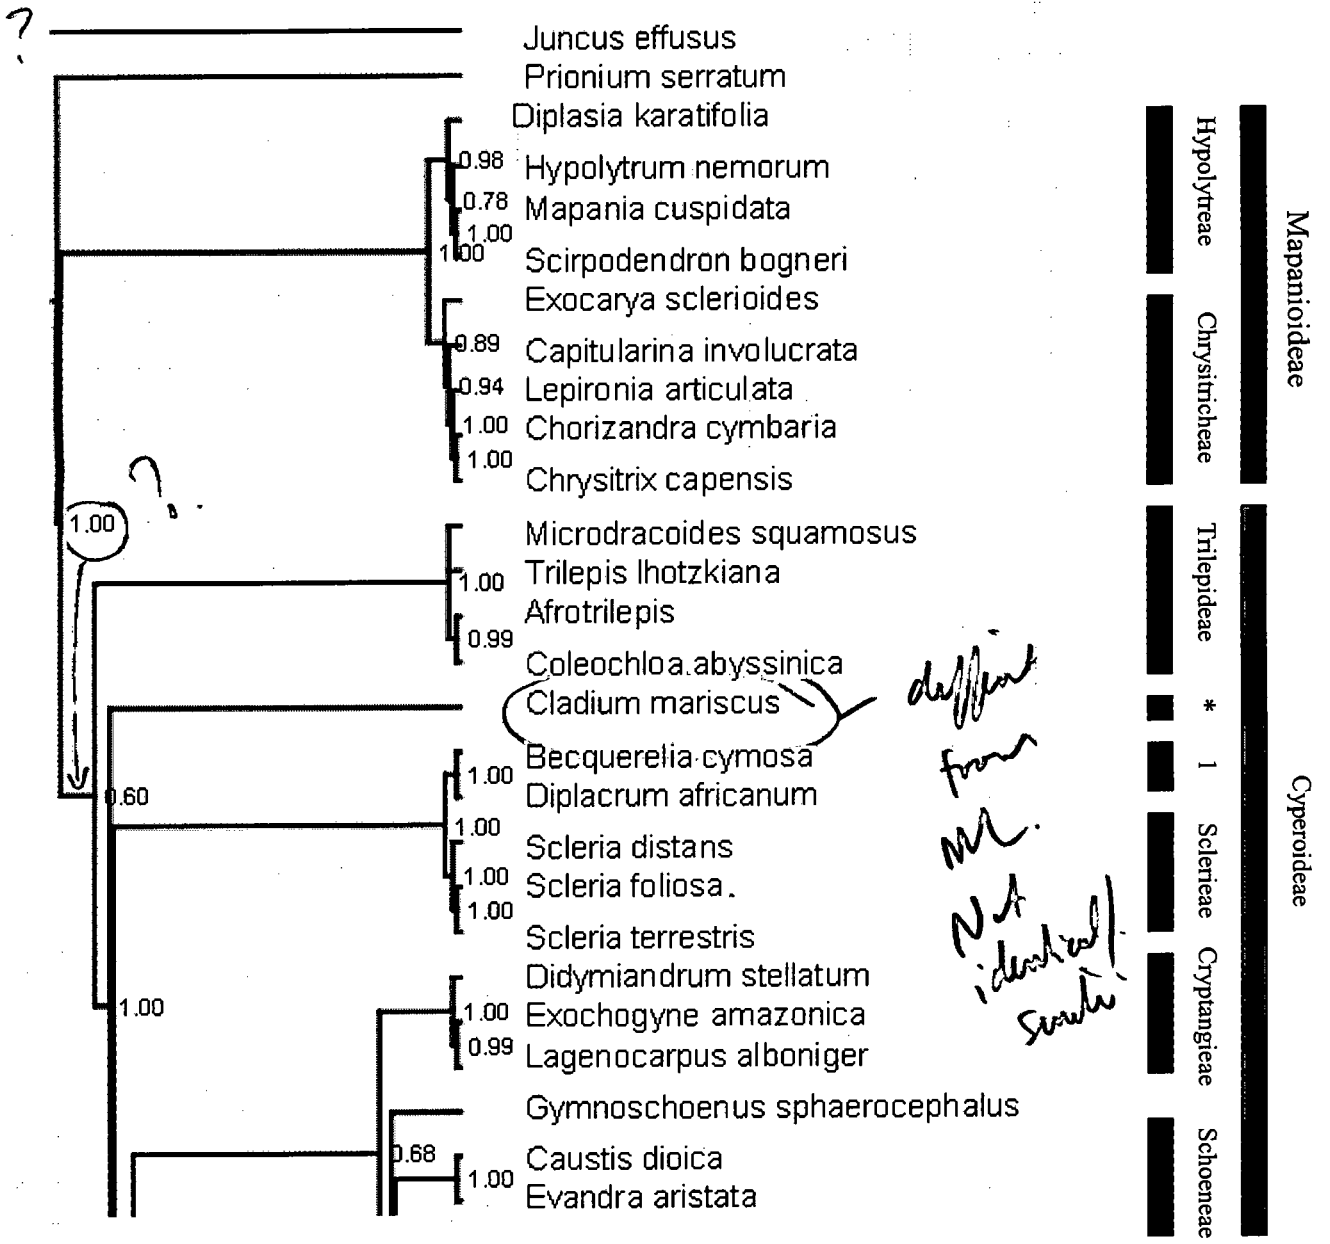 ?
Juncus effusus
Prionium serratum
Diplasia karatifolia
0.98
Hypolytrum nemorum
0.78
Mapania cuspidata
1.00
1.00
Scirpodendron bogneri
Exocarya sclerioides
0.89
Capitularina involucrata
0.94
Lepironia articulata
1.00
Chorizandra cymbaria
1.00
Chrysitrix capensis
?
1.00
Microdracoides squamosus
1.00
Trilepis lhotzkiana
Afrotrilepis
0.99
Coleochloa abyssinica
Cladium mariscus
Becquerelia cymosa
1.00
Diplacrum africanum
0.60
1.00
Scleria distans
1.00
Scleria foliosa
1.00
Scleria terrestris
Didymiandrum stellatum
1.00
Exochogyne amazonica
1.00
0.99
Lagenocarpus alboniger
Gymnoschoenus sphaerocephalus
0.68
Caustis dioica
1.00
Evandra aristata
from
ML.
Not
identical!
Hypolytreae
Chrysitricheae
Trilepideae
*
1
Sclerieae
Cryptangieae
Schoeneae
Mapanioideae
Cyperoideae